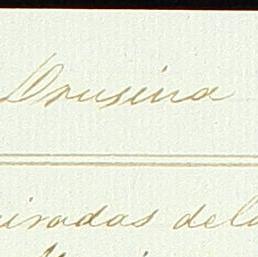 Drusina
uiradas dela